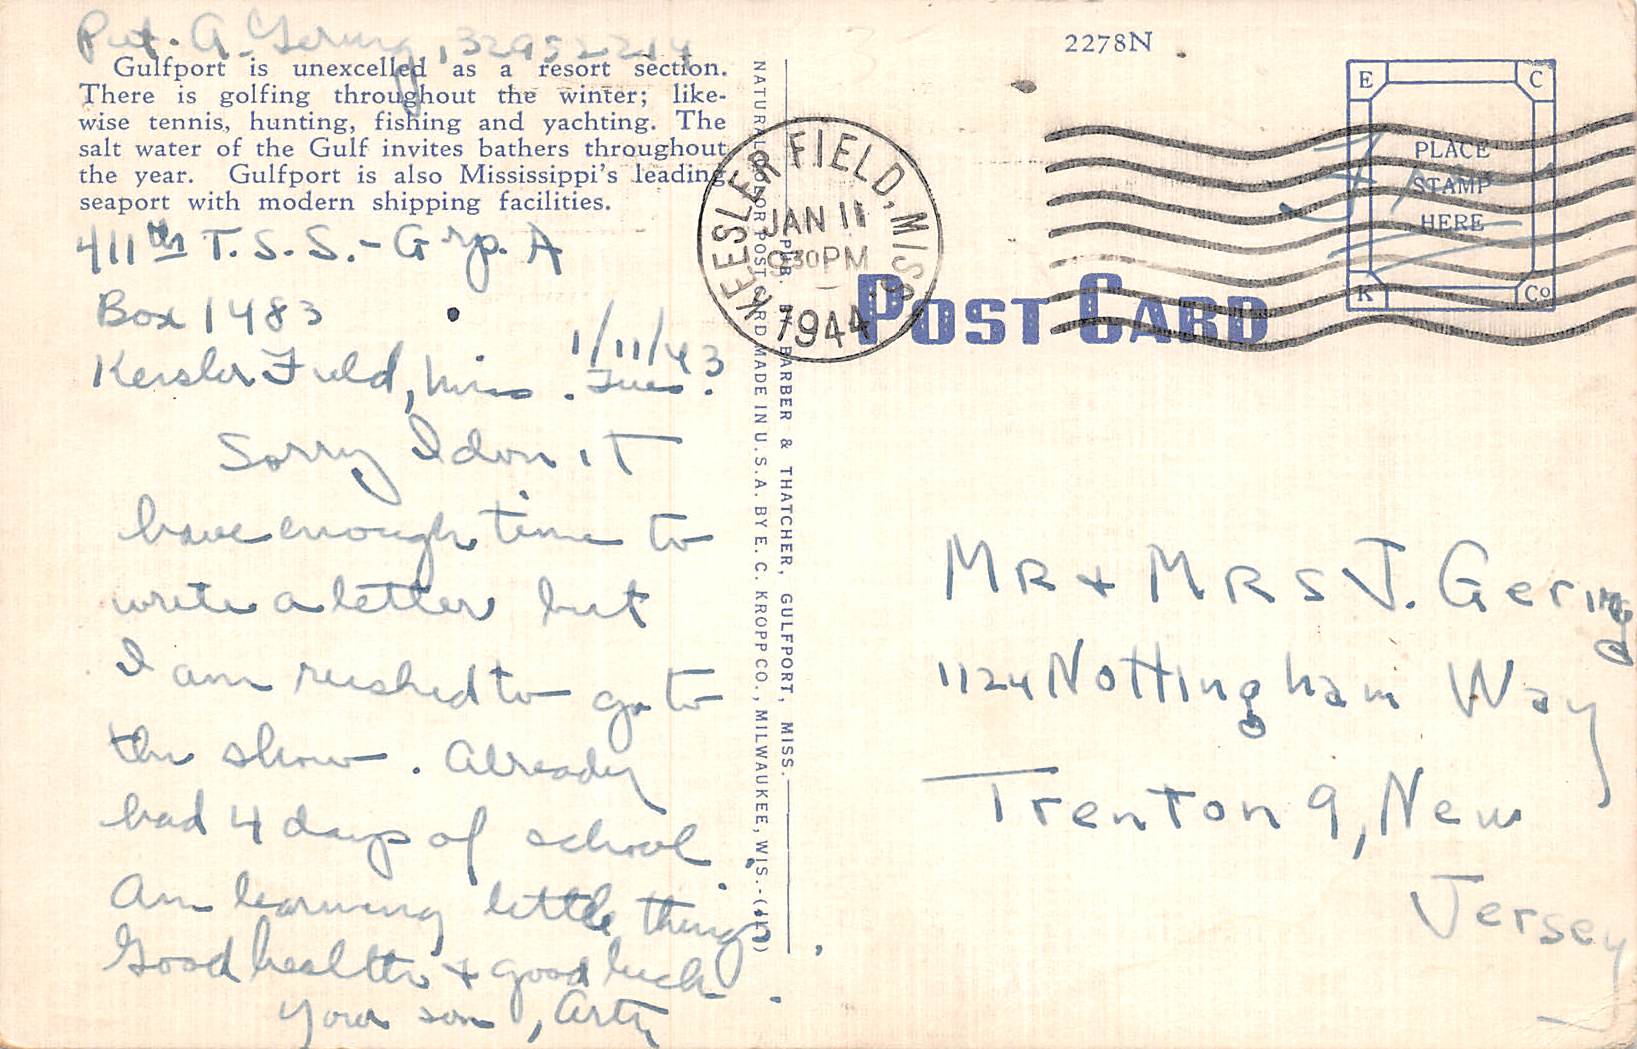 Pvt. A. Gering, 32952214
Gulfport is unexcelled as a resort section.
There is golfing throughout the winter; like-
wise tennis, hunting, fishing and yachting. The
salt water of the Gulf invites bathers throughout
the year. Gulfport is also Mississippi's leading
seaport with modern shipping facilities.
411th T.S.S. - Grp. A
Box 1483
Keesler Field, Miss. Tues.
1/11/43
Sorry I don't
have enough time to
write a letter but
I am rushed to go to
the show. Already
had 4 days of school.
Am learning little things.
Good health & good luck.
Your son, Arty
NATURAL COLOR POST CARD MADE IN U.S.A. BY E. C. KROPP CO., MILWAUKEE, WIS.
PUB. BY BARBER & THATCHER, GULFPORT, MISS.
2278N
KEESLER FIELD, MISS.
JAN 11
930PM
1944
POST CARD
E C
PLACE
STAMP
HERE
K Co
MR + MRS J. Gering
1124 Nottingham Way
Trenton 9, New
Jersey